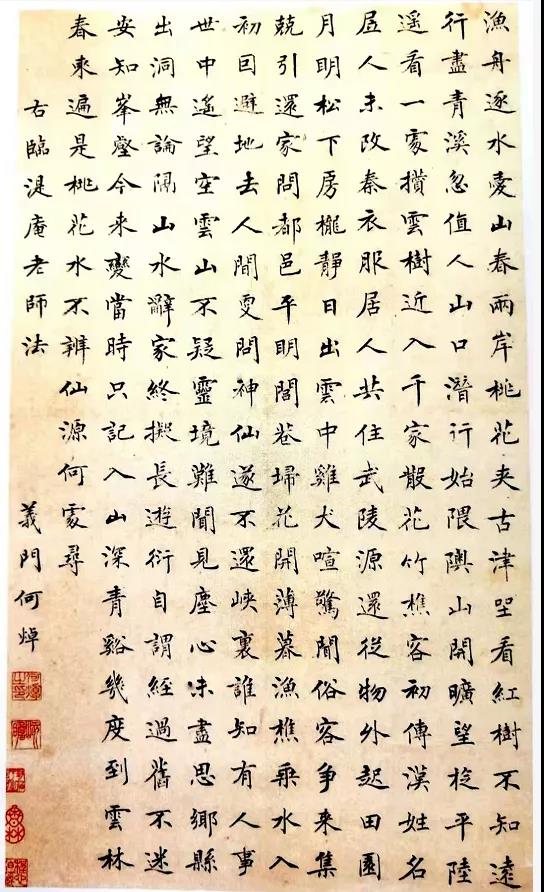 漁舟逐水愛山春兩岸桃花夾古津坐看紅樹不知遠
行盡青溪忽值人山口潛行始隈隩山開曠望旋平陸
遥看一處攢雲樹近入千家散花竹樵客初傳漢姓名
居人未改秦衣服居人共住武陵源還從物外起田園
月明松下房櫳靜日出雲中雞犬喧驚聞俗客爭来集
競引還家問都邑平明閭巷埽花開薄暮漁樵乘水入
初因避地去人間更問神仙遂不還峽裏誰知有人事
世中遙望空雲山不疑靈境難聞見塵心未盡思鄉縣
出洞無論隔山水辭家終擬長遊衍自謂經過舊不迷
安知峯壑今来變當時只記入山深青谿幾度到雲林
春來遍是桃花水不辨仙源何處尋
右臨湜庵老師法
義門何焯